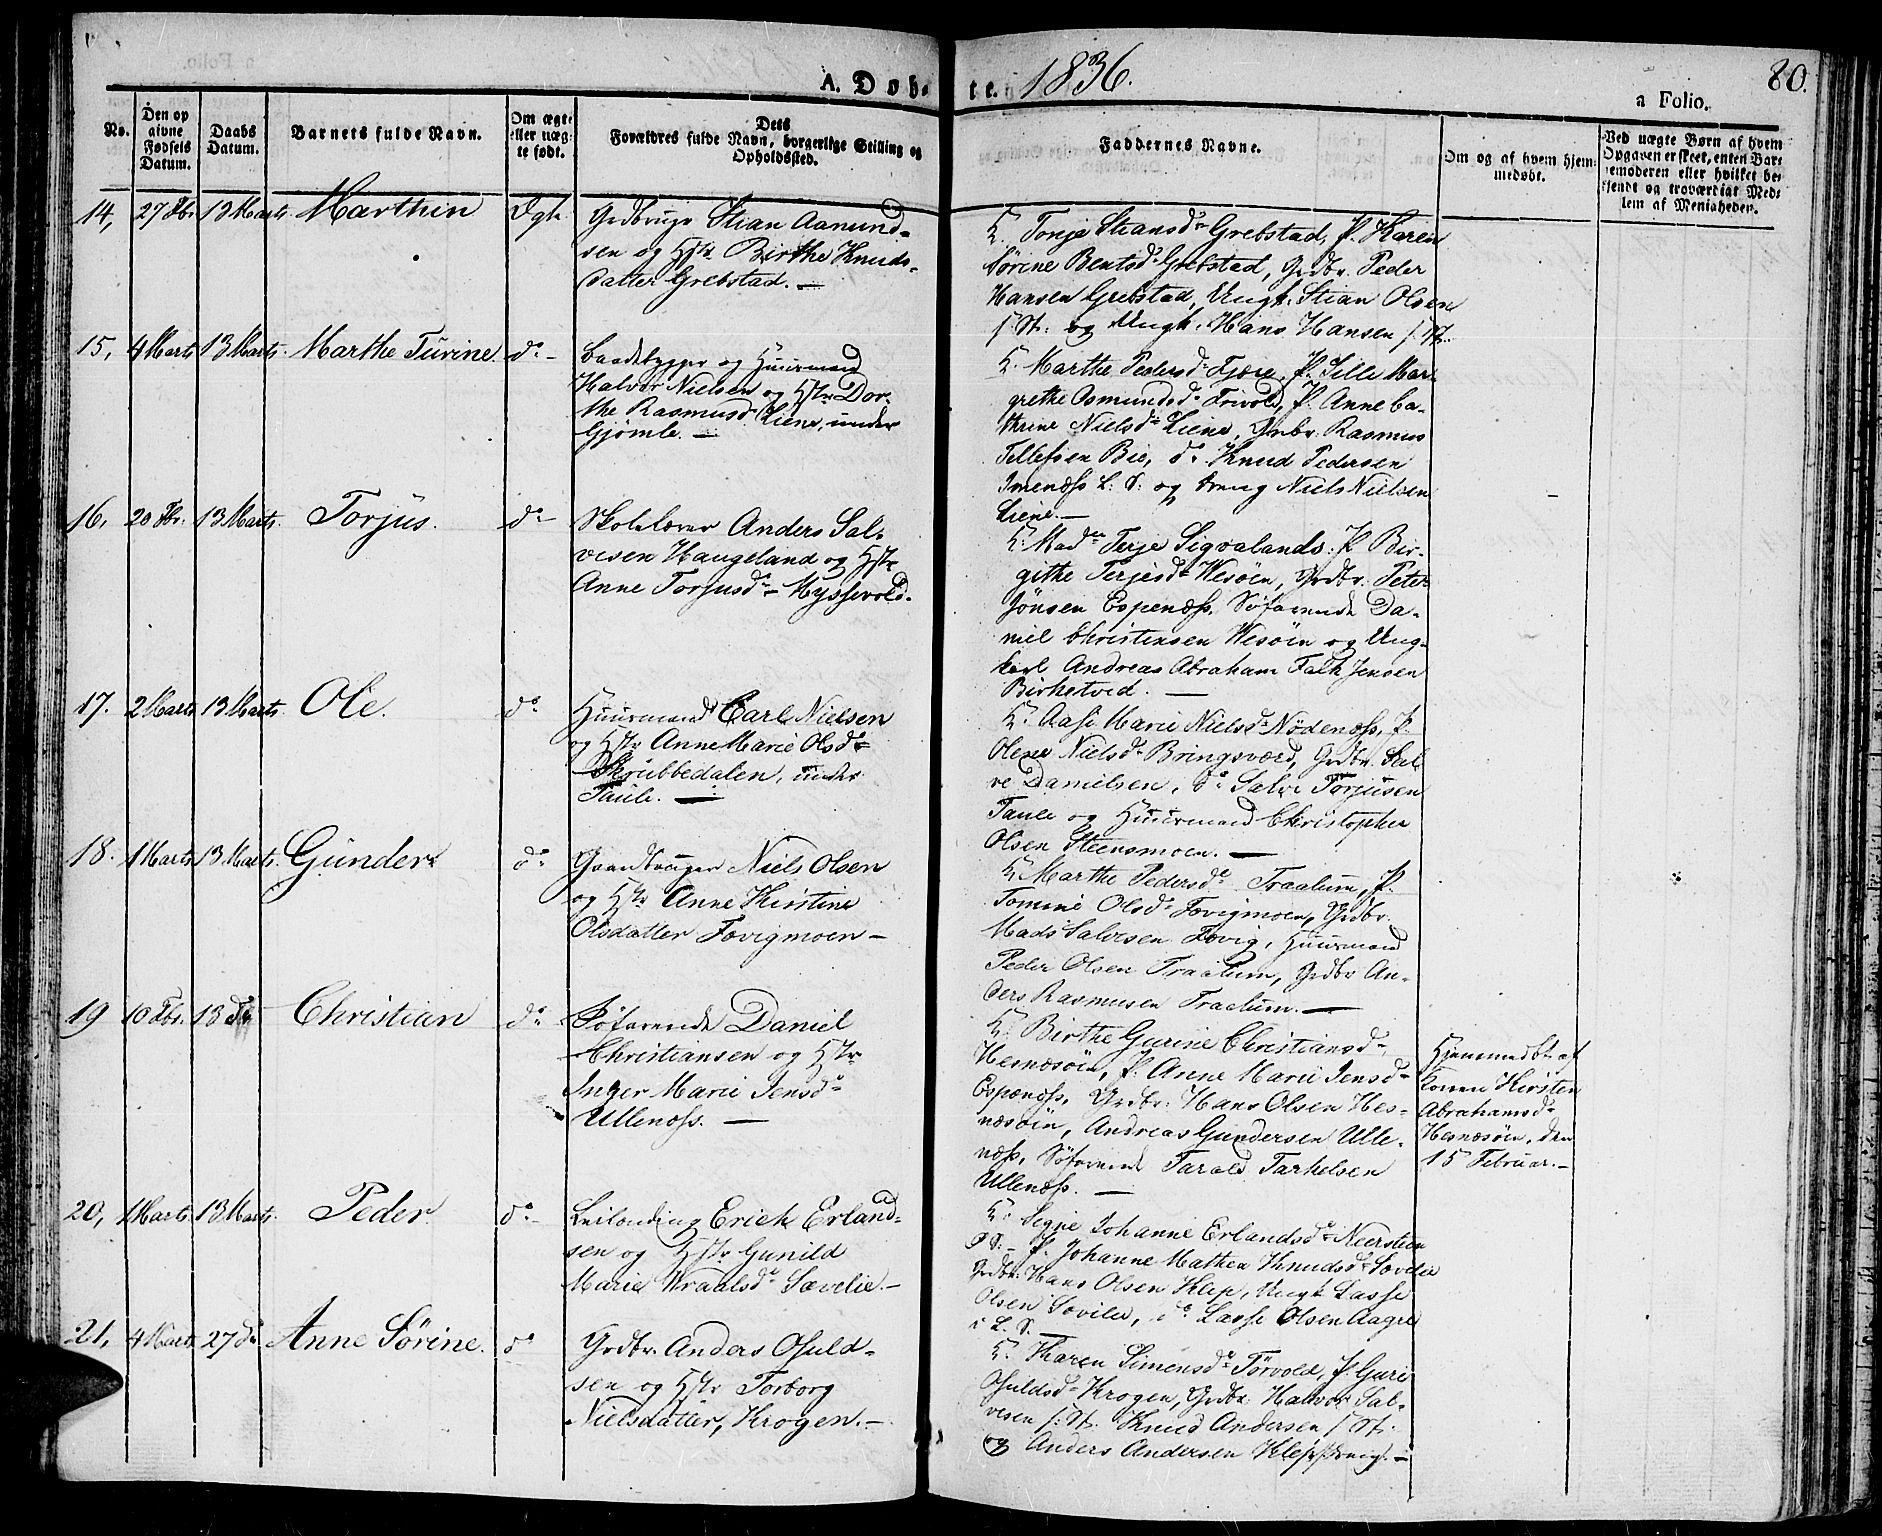 A. Døb-
te. 1836.
80.
a Folio.
No.
Den op
givne
Fødsels
Datum.
Daabs
Datum.
Barnets fulde Navn.
Om ægte
eller uæg-
te født.
Dets
Forældres fulde Navn, borgerlige Stilling og
Opholdssted.
Faddernes Navne.
Om og af hvem hjem-
medøbt.
Ved uægte Børn af hvem
Opgaven er skeet, enten Bar-
nemoderen eller hvilket be-
kjendt og troværdigt Med-
lem af Menigheden.
14, 27 Fbr. 13 Marts. Marthin Ægte
Grdbruger Stian Aamund-
sen og Hstr Birthe Knuds-
datter Grebstad. —
K. Tonje Stiansdr Grebstad, P. Karen
Sørine Bentsdr Grebstad, Grdbr. Peder
Hansen Grebstad, Ungk. Stian Olsen
s. St: og Ungk. Hans Hansen s. St.
15, 4 Marts 13 Marts. Marthe Turine. do —
Baadebygger og Huusmand
Halvor Nielsen og Hstr Dor-
the Rasmusd. Liene, under
Gjømle. —
K. Marthe Pedersdr Fjære, P. Sille Mar-
grethe Osmundsdr Frivold, P. Anne Ca-
thrine Nielsdr Liene, Grdbr. Rasmus
Tellefsen Bie, do Knud Pedersen
Imenæss L. S. og dreng Niels Nielsen
Liene. —
16, 20 Fbr. 13 Marts. Torjus. do —
Skolelærer Anders Sal-
vesen Haugeland og Hstr
Anne Torjusdr Myssevold.
K. Madm Terje Sigvalands. P. Bir-
githe Terjesdr Wesøen, Grdbr. Peter
Jonsen Espenæss, Søfarende Da-
niel Christensen Wesøen og Ung-
karl Andreas Abraham Falk Jensen
Birketved. —
17. 2 Marts 13 Marts. Ole. do
Huusmand Carl Nielsen
og Hstr Anne Marie Olsdr
Skrubbedalen, under
Taule. —
K. Aase Marie Nielsdr Nødenæss, P.
Olene Nielsdr Bringsværd, Grdbr. Sal-
ve Danielsen, do Salve Torjusen
Taule og Huusmand Christopher
Olsen Steensmoen. —
18. 1 Marts 13 Marts. Gunder do
Gaardbruger Niels Olsen
og Hstr Anne Kirstine
Olsdatter Fævigmoen —
K Marthe Pedersdr Traalum, P.
Tomine Olsdr Fævigmoen, Grdbr.
Mads Salvesen Fævig, Huusmand
Peder Olsen Traalum, Grdbr An-
ders Rasmusen Traalum. —
19 10 Fbr. 13 do Christian do
Søfarende Daniel
Christiansen og Hstr
Inger Marie Jensdr
Ullenæss. —
K. Birthe Gurine Christiansdr
Hesnæsøen, P. Anne Marie Jensdr
Espenæss, Grdbr. Hans Olsen Hes-
næsøen, Andreas Gundersen Ulle-
næss, Søfarende Tarald Tarkelsen
Ullenæss. —
Hjemmedbt af
Konen Kirsten
Abrahamsdr
Hesnæsøen, den
15 Februar. —
20, 1 Marts. 13 Marts. Peder. do —
Leilænding Erich Erland-
sen og Hstr Gunild
Marie Wraalsdr Sævelie —
K. Signe Johanne Erlandsdr Neersteen
Ø S. — P. Johanne Mathea Knudsdr Sævelie
Grdbr. Hans Olsen Klep, Ungk Lasse
Olsen Sævelie, do Lasse Olsen Aagre
i L. S. —
21, 4 Marts. 27 do Anne Sørine. do
Grdbr. Anders Osuld-
sen og Hstr Torborg
Nielsdatter, Krogen. —
K. Karen Simensdr Tørvold, P. Guri
Osuldsdr Krogen, Grdbr. Halvor Sal-
vesen s. St. Knud Andersen s St.
og Anders Andersen Klep